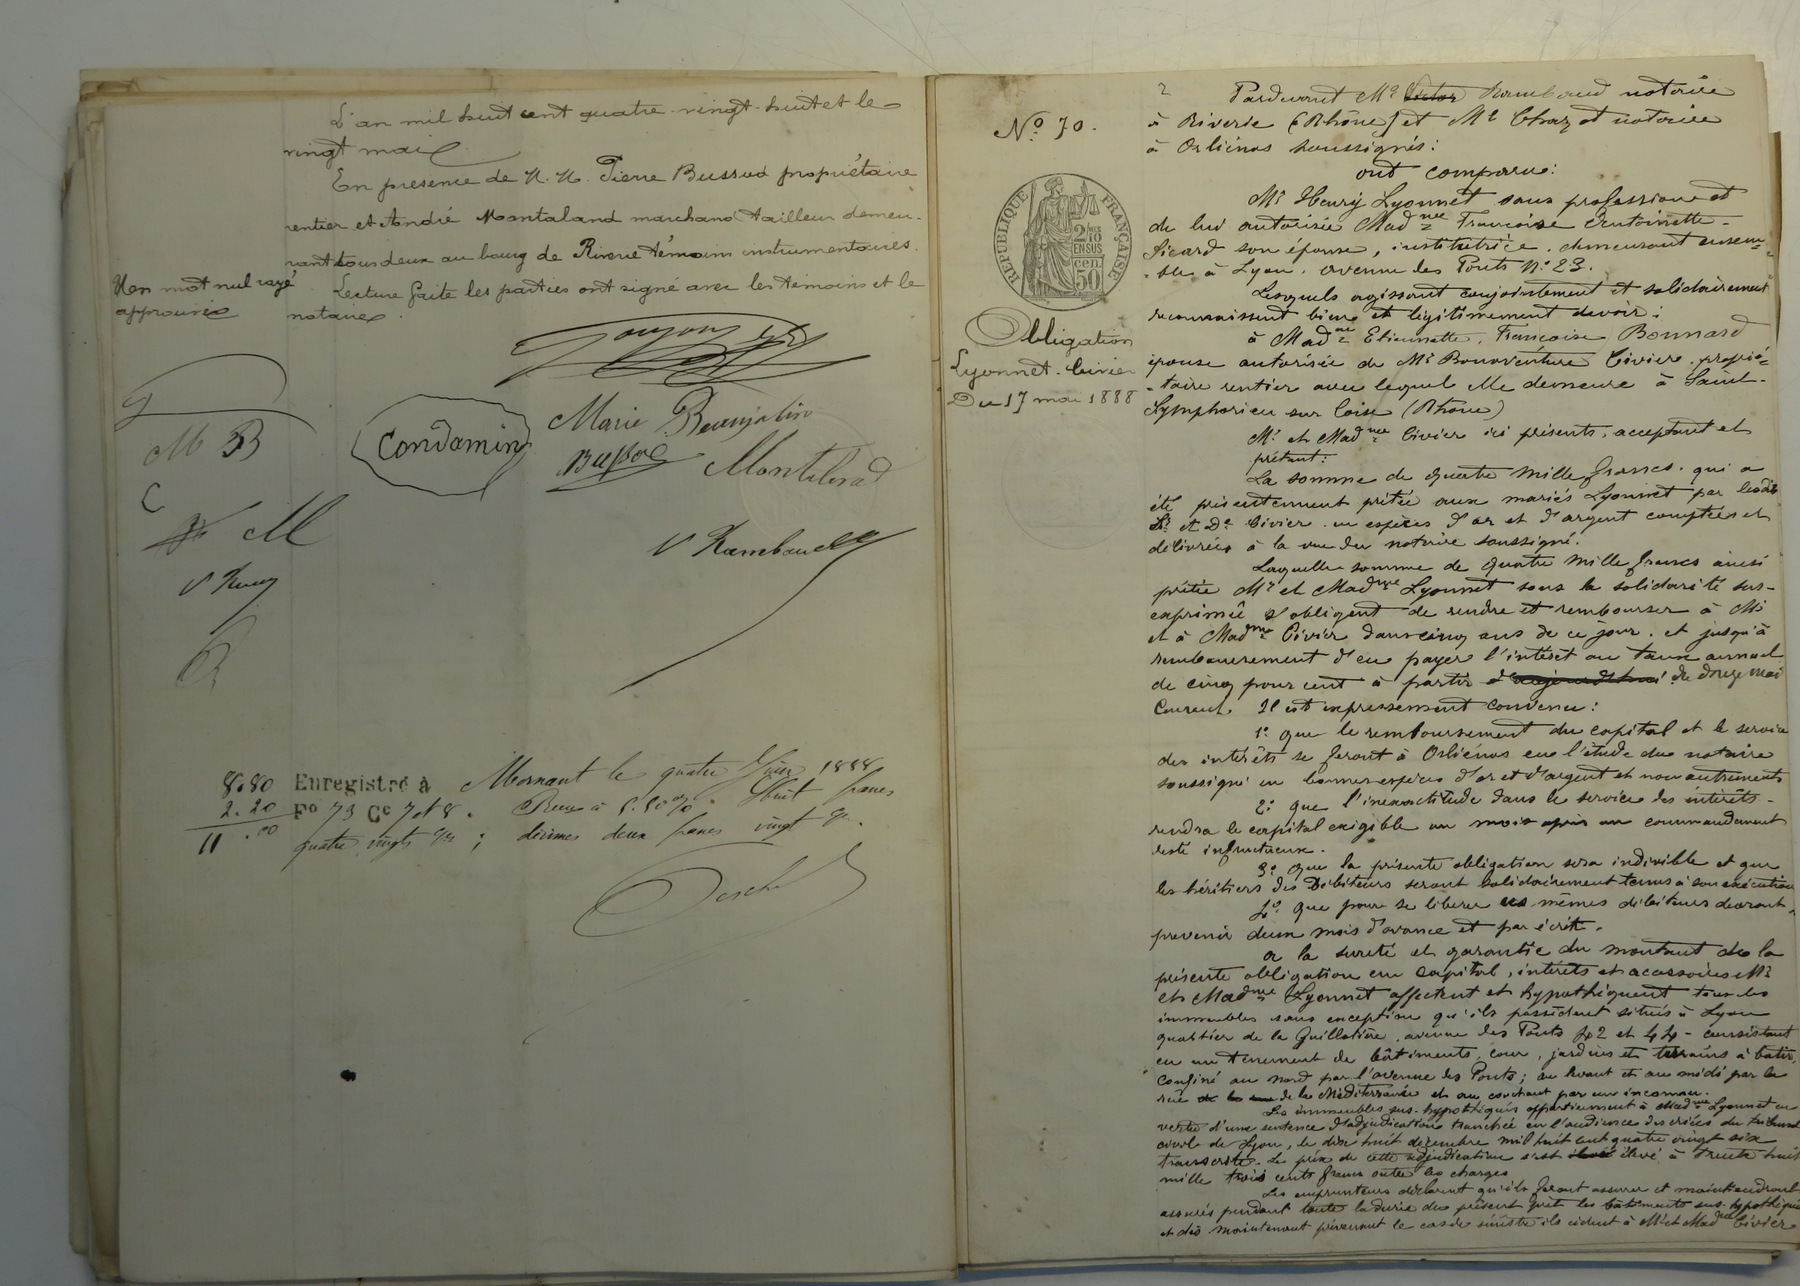 L'an mil huit cent quatre vingt-huit et le
vingt mai
En presence de M. M. Pierre Bussod propriétaire
rentier et André Montaland marchand tailleur demeu-
rant tous deux au bourg de Riverie témoins instrumentaires.
Lecture faite les parties ont signé avec les témoins et le
notaire.
Un mot nul rayé
approuvé
Condamin
Marie Beaujolin
Bussod
Montaland
M B
C
M
V Rambaud
8.80
2.20
11.00
Enregistré à Mornant le quatre Juin 1888
Fo 73 Ce 7 et 8. Reçu à 1.10 %. Huit francs
quatre vingts ; décimes deux francs vingt
N° 70.
RÉPUBLIQUE FRANÇAISE
2 10
EN SUS
50 cen
Obligation
Lyonnet-Civier
Du 17 mai 1888
2
Pardevant Me Victor Rambaud notaire
à Riverie (Rhône) et Me Chazot notaire
à Orliénas soussignés:
ont comparu:
Mr Henry Lyonnet sans profession et
de lui autorisée Madme Françoise Antoinette
Sicard son épouse, institutrice, demeurant ensem-
-ble à Lyon, avenue des Ponts N° 23.
Lesquels agissant conjointement et solidairement
reconnaissent bien et légitimement devoir:
à Madme Etiennette Françoise Bonnard
épouse autorisée de Mr Bonaventure Civier, proprié-
-taire rentier avec lequel elle demeure à Saint-
Symphorien sur Coise (Rhône)
Mr et Madme Civier ici présents, acceptant et
prêtant:
La somme de quatre mille francs, qui a
été présentement prêtée aux mariés Lyonnet par lesdits
Sr et De Civier en espèces d'or et d'argent comptées et
délivrées à la vue du notaire soussigné.
Laquelle somme de quatre mille francs ainsi
prêtée Mr et Madme Lyonnet sous la solidarité sus-
exprimée s'obligent de rendre et rembourser à Mr
et à Madme Civier dans cinq ans de ce jour, et jusqu'à
remboursement d'en payer l'intérêt au taux annuel
de cinq pour cent à partir d'aujourd'hui du douze mai
courant. Il est expressement convenu:
1° que le remboursement du capital et le service
des intérêts se feront à Orliénas en l'étude du notaire
soussigné en bonnes espèces d'or et d'argent et non autrement
2° que l'inexactitude dans le service des intérêts
rendra le capital exigible un mois après un commandement
resté infructueux.
3° que la présente obligation sera indivisible et que
les héritiers des Débiteurs seront solidairement tenus à son exécution
4° que pour se libérer les mêmes débiteurs devront
prevenir deux mois d'avance et par écrit.
A la sureté et garantie du montant de la
présente obligation en capital, intérêts et accessoires Mr
et Madme Lyonnet affectent et hypothèquent tous les
immeubles sans exception qu'ils possèdent situés à Lyon
quartier de la Guillotière, avenue des Ponts 42 et 44 - consistant
en un tènement de bâtiments, cour, jardins et terrains à batir,
confiné au nord par l'avenue des Ponts; au levant et au midi par la
rue de la Méditerranée et au couchant par un inconnu.
Les immeubles sus-hypothéqués appartiennent à Madme Lyonnet en
vertu d'une sentence d'adjudication tranchée en l'audience des criées du tribunal
civil de Lyon, le dix huit décembre mil huit cent quatre vingt six
transcrite. Le prix de cette adjudication s'est élevé à trente huit
mille trois cents francs outre les charges
Les emprunteurs déclarent qu'ils feront assurer et maintiendront
assurés pendant toute la durée du présent prêt les bâtiments sus-hypothéqués
et dès maintenant prévenant le cas de sinistre ils cèdent à Mr et Madme Civier